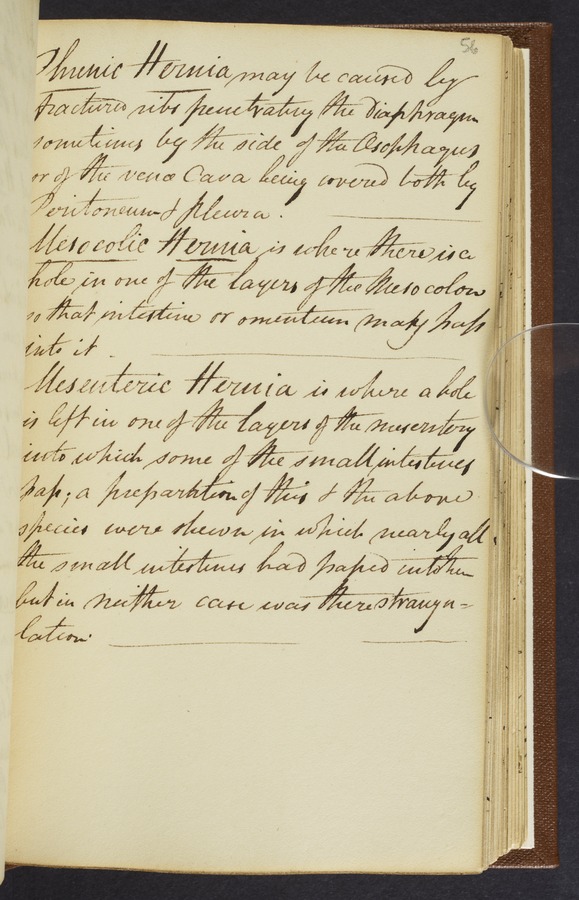 56
Phrenic Hernia may be caused by
fractured ribs penetrating the Diaphragm
sometimes by the side of the Œsophagus
or of the vena Cava being covered both by
Peritoneum & pleura.
Mesocolic Hernia is where there is a
hole in one of the layers of the Mesocolon
so that intestine or omentum may pass
into it.
Mesenteric Hernia is where a hole
is left in one of the layers of the mesentery
into which some of the small intestines
pass; a preparation of this & the above
species were shewn in which nearly all
the small intestines had passed into them
but in neither case was there strangu=
lation.